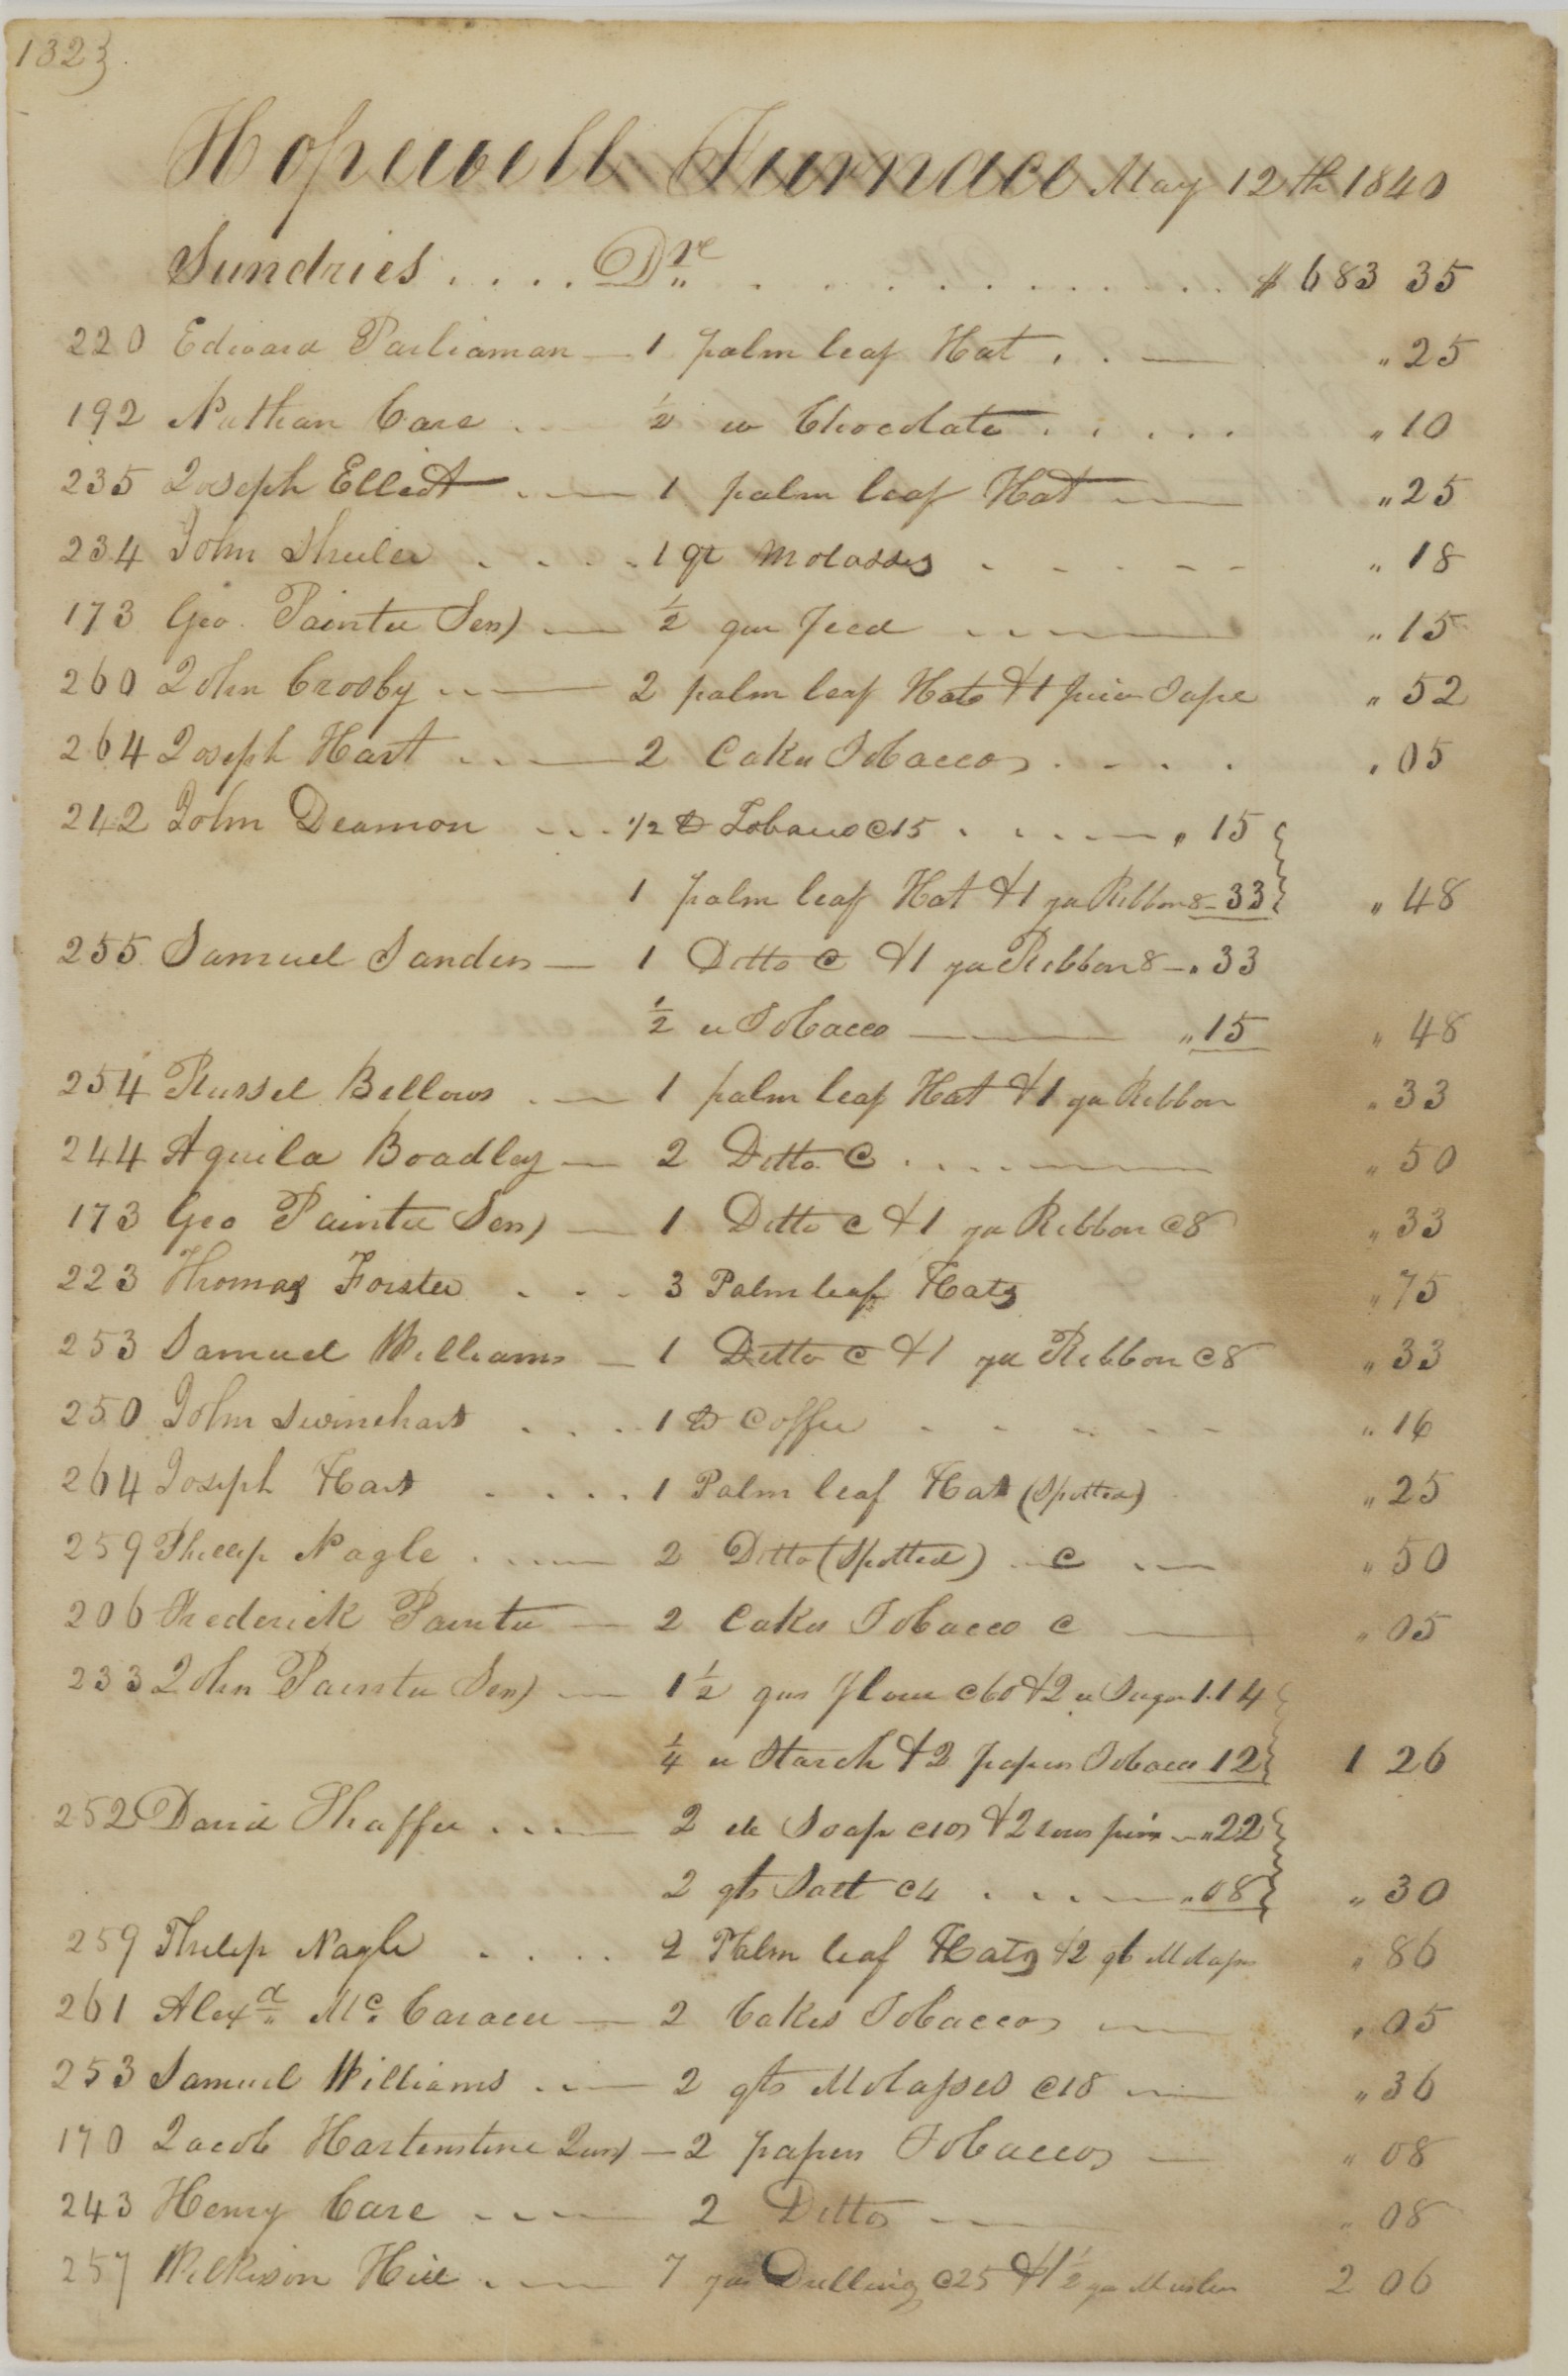 132}
Hopewell Furnace May 12th 1840
Sundries .... Dre ............ $ 683 35
220 Edward Parliaman — 1 palm leaf Hat . . — " 25
192 Nathan Care . — ½ " Chocolate ..... " 10
235 Joseph Elliott . — 1 palm leaf Hat — " 25
234 John Sheeler .... 1 qt Molasses ..... " 18
173 Geo. Painter Senr — ½ qr Feed — " 15
260 John Crosby — 2 palm leaf Hats & 1 piece Tape " 52
264 Joseph Hart — 2 Cakes Tobacco .... " 05
242 John Deamon ... 1/2 lb Tobacco @15 .... " 15
1 palm leaf Hat & 1 yd Ribbon 8 - 33 " 48
255 Samuel Sanders — 1 Ditto @ & 1 yd Ribbon 8 — " 33
½ " Tobacco — " 15 " 48
254 Russel Bellows . — 1 palm leaf Hat & 1 yd Ribbon " 33
244 Aquila Boadley — 2 Ditto @ .... — " 50
173 Geo Painter Senr — 1 Ditto @ & 1 yd Ribbon @8 " 33
223 Thomas Forster ... 3 Palm leaf Hats " 75
253 Samuel Williams — 1 Ditto @ & 1 yd Ribbon @8 " 33
250 John Swinehart .... 1 lb Coffee ..... " 16
264 Joseph Hart .... 1 Palm leaf Hat (Spotted) " 25
259 Phillip Nagle . — 2 Ditto (Spotted) @ — " 50
206 Frederick Painter — 2 Cakes Tobacco @ — " 05
233 John Painter Senr — 1½ qrs flour @60 & 2 " Sugar 1.14
¼ " Starch & 2 papers Tobacco 12 1 26
252 David Shaffer ... — 2 " Soap @10 & 2 rows pins — " 22
2 qts Salt @4 .... — " 08 " 30
259 Philip Nagle .... 2 Palm leaf Hats & 2 qts Molasses " 86
261 Alexd Mc. — 2 Cakes Tobacco — " 05
253 Samuel Williams . — 2 qts Molasses @18 — " 36
170 Jacob Hartenstine Junr — 2 papers Tobacco — " 08
243 Henry Care — 2 Ditto — " 08
257 Wilkison Hill . — 7 yds Drilling @25 & 1½ yd Muslin 2 06